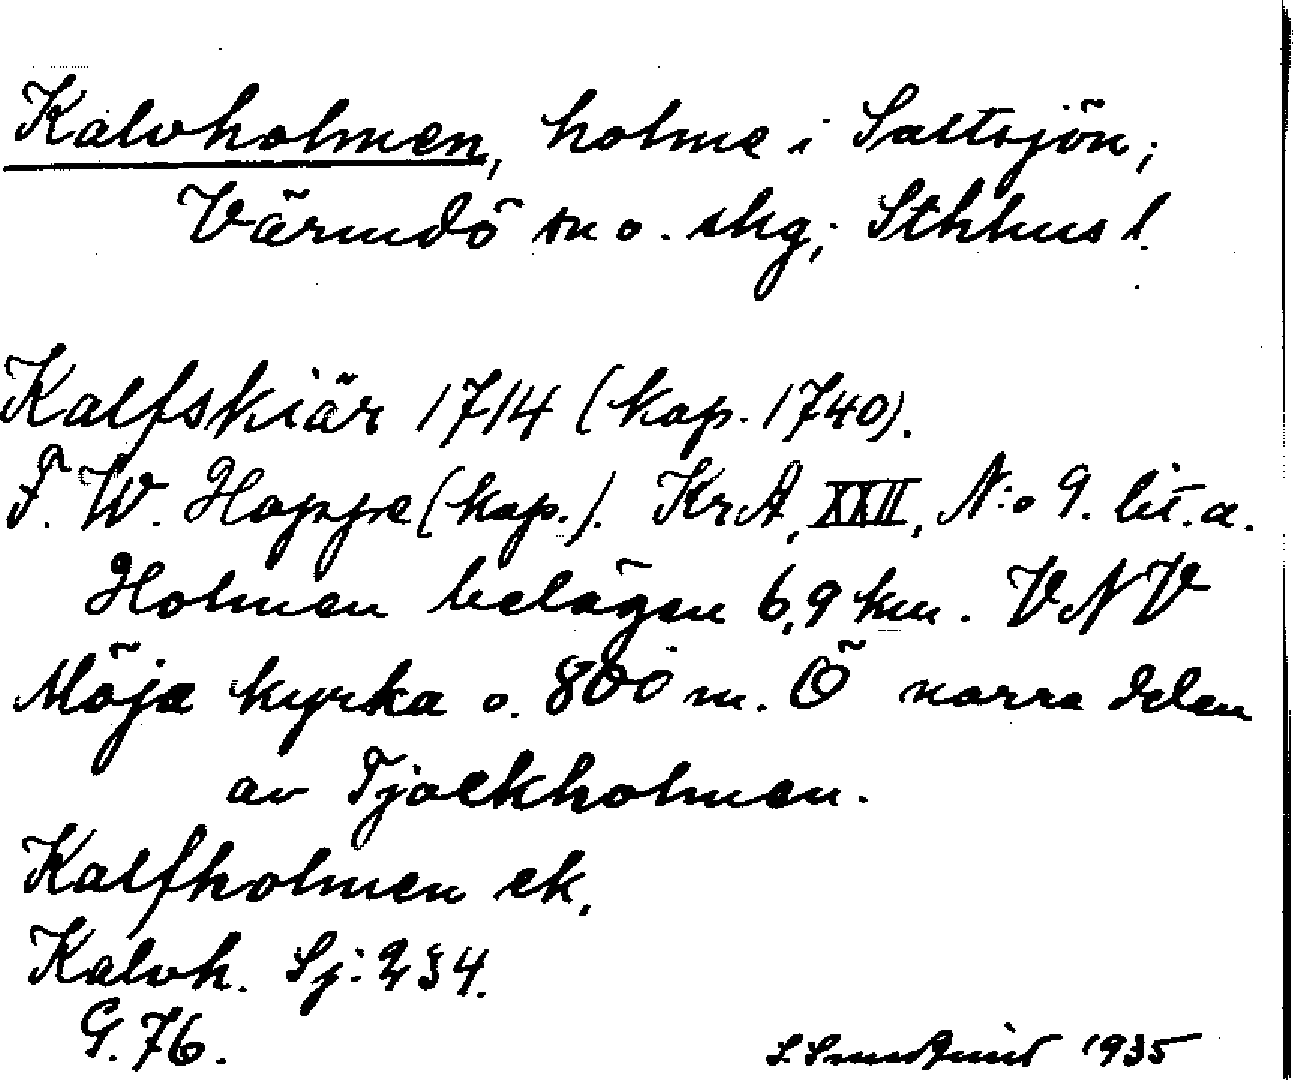 Kalvholmen, holme i Saltsjön;
Värmdö sn o. skg; Sthlms l.
Kalfskiär 1714 (kop. 1740).
F. W. Hoppe (kop.). KrA, XXII, N:o 9. lit. a.
Holmen belägen 6,9 km. VNV
Möja kyrka o. 800 m. Ö norra delen
av Tjockholmen.
Kalfholmen ek.
Kalvh. Sj: 234.
G. 76.
1935